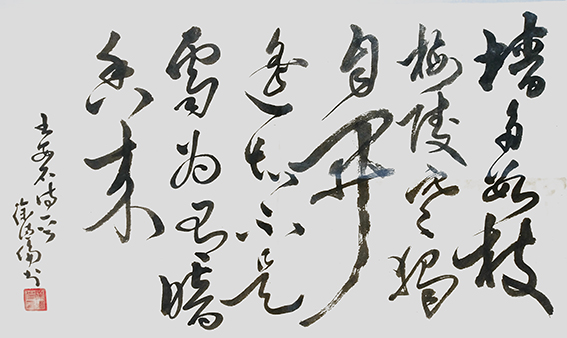 墙角数枝
梅凌寒独
自开
遥知不是
雪为有暗
香来
王安石诗
书